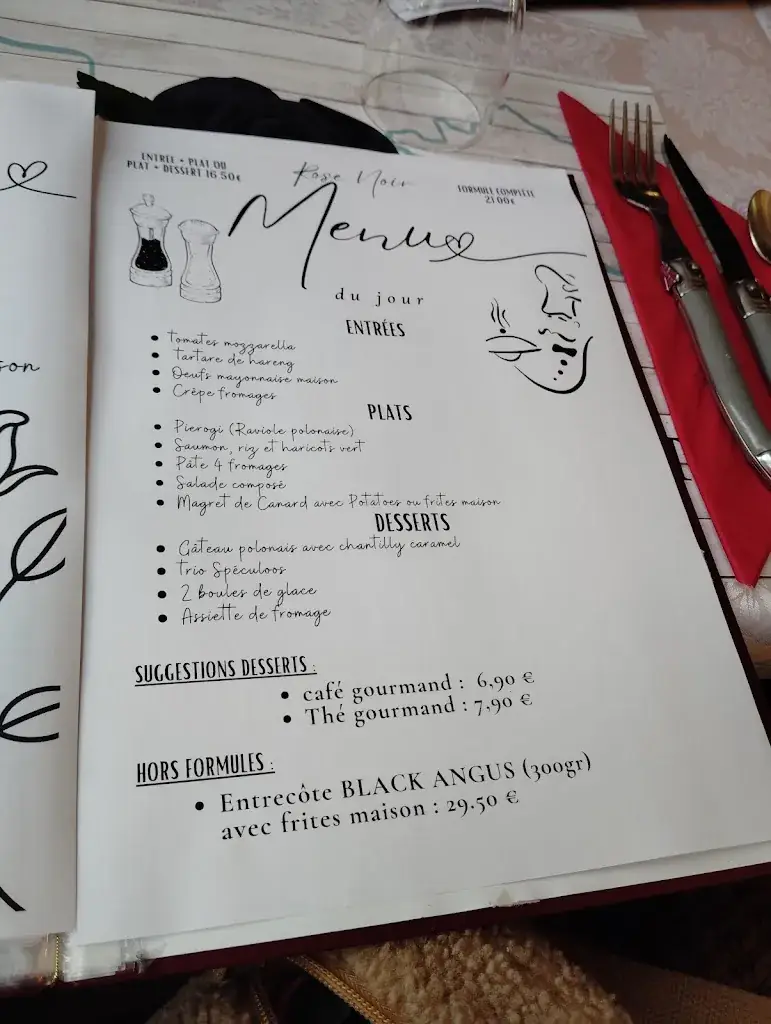 ENTREE + PLAT OU
PLAT + DESSERT 16.50€
Rose Noir
FORMULE COMPLÈTE
21.00€
Menu
du jour
ENTRÉES
• Tomates mozzarella
• Tartare de hareng
• Oeufs mayonnaise maison
• Crêpe fromages
PLATS
• Pierogi (Raviole polonaise)
• Saumon, riz et haricots vert
• Pâte 4 fromages
• Salade composé
• Magret de Canard avec Potatoes ou frites maison
DESSERTS
• Gâteau polonais avec chantilly caramel
• Trio Spéculoos
• 2 boules de glace
• Assiette de fromage
SUGGESTIONS DESSERTS :
• café gourmand : 6,90 €
• Thé gourmand : 7,90 €
HORS FORMULES :
• Entrecôte BLACK ANGUS (300gr)
avec frites maison : 29.50 €